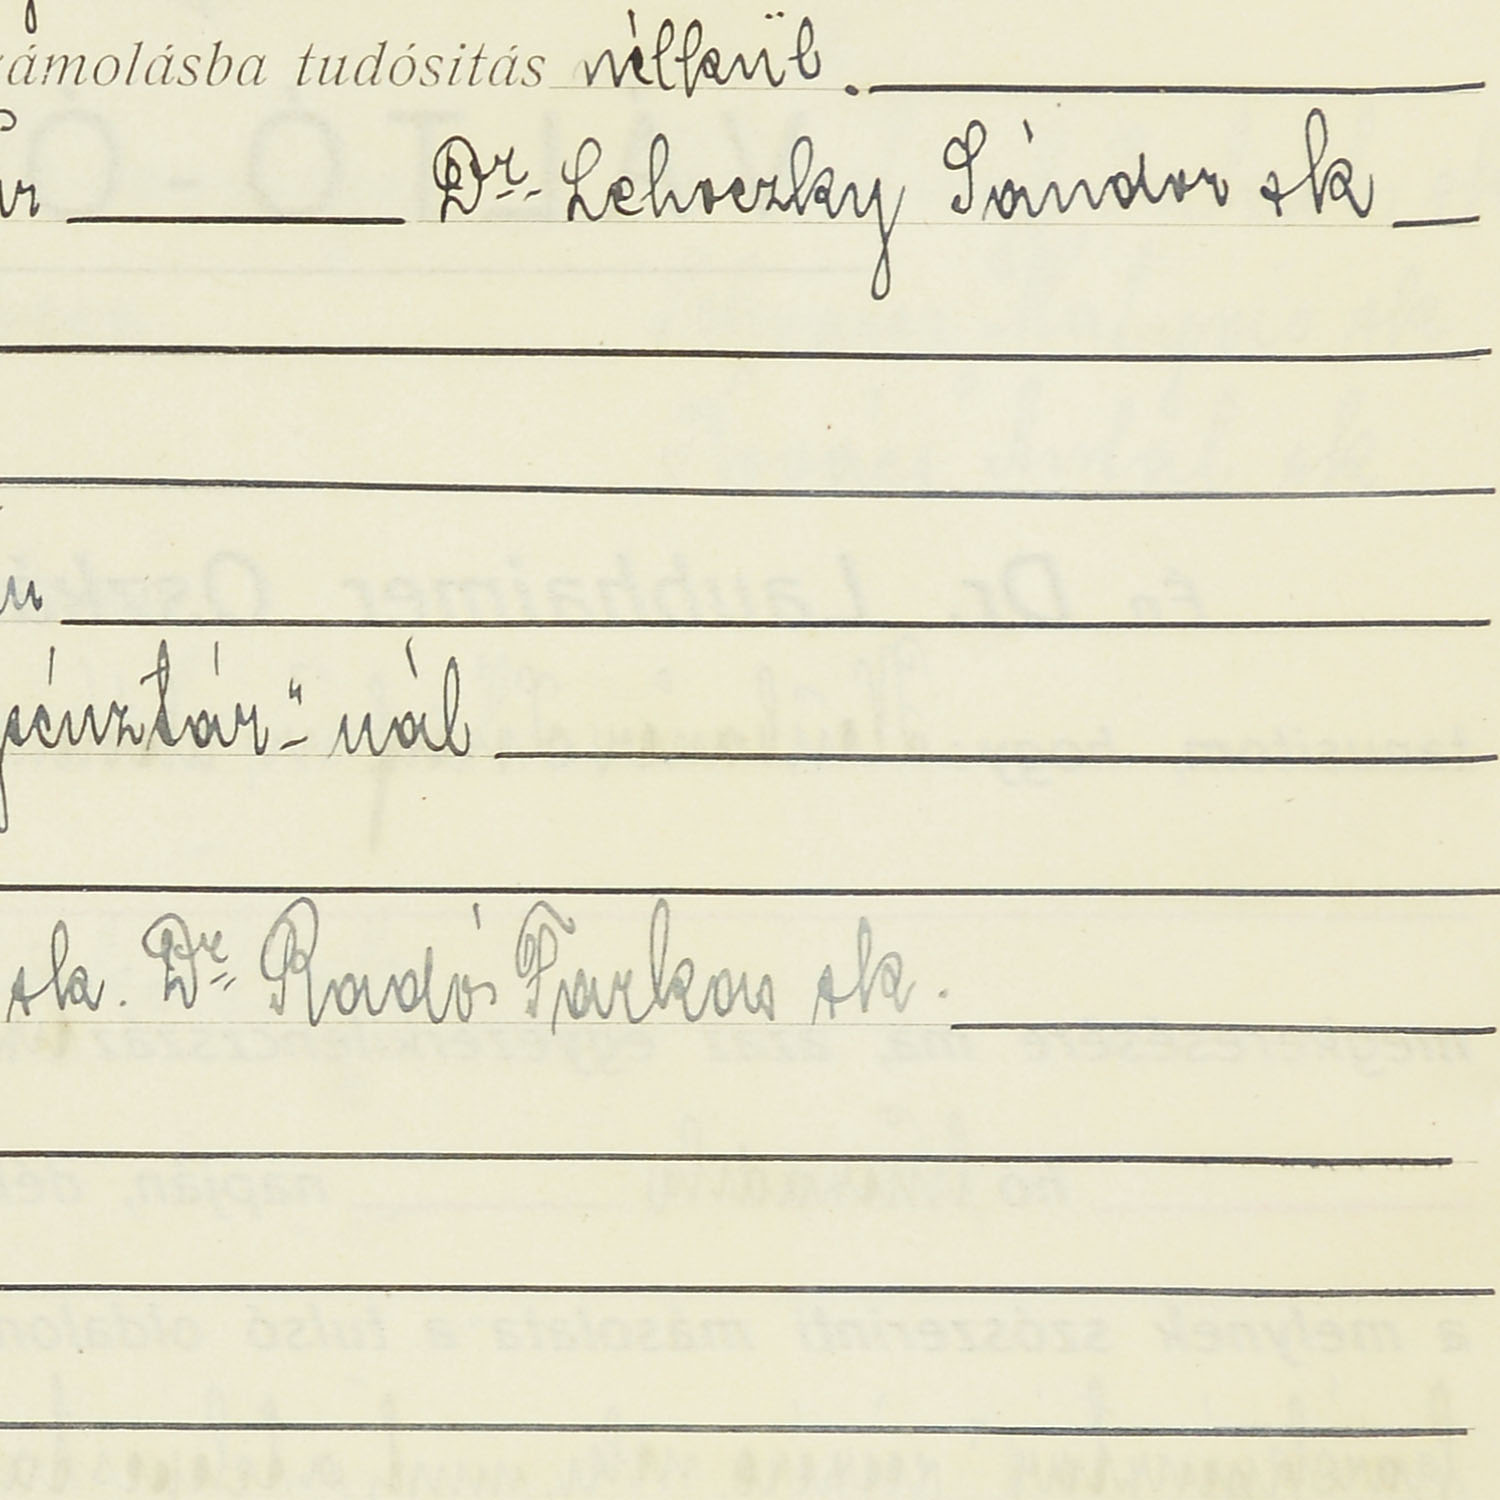 számolásba tudósitás nélkül.
Dr. Lehoczky Sándor sk
pénztár"-nál
sk. Dr. Radó Farkas sk.